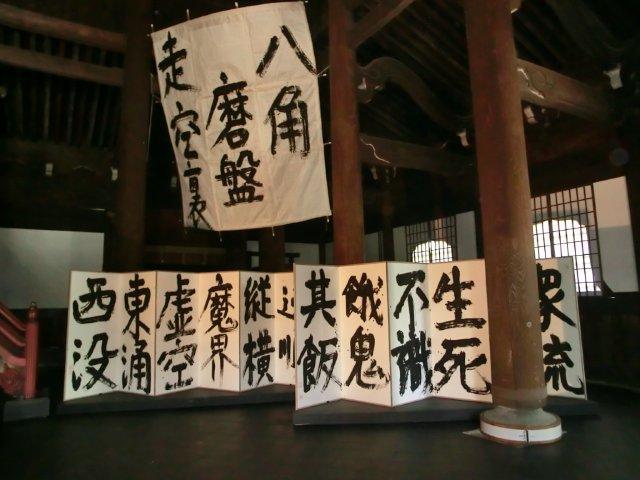 八角
磨盤
走空裏
衆流
生死
不識
餓鬼
其飯
縦横
魔界
虚空
東涌
西没